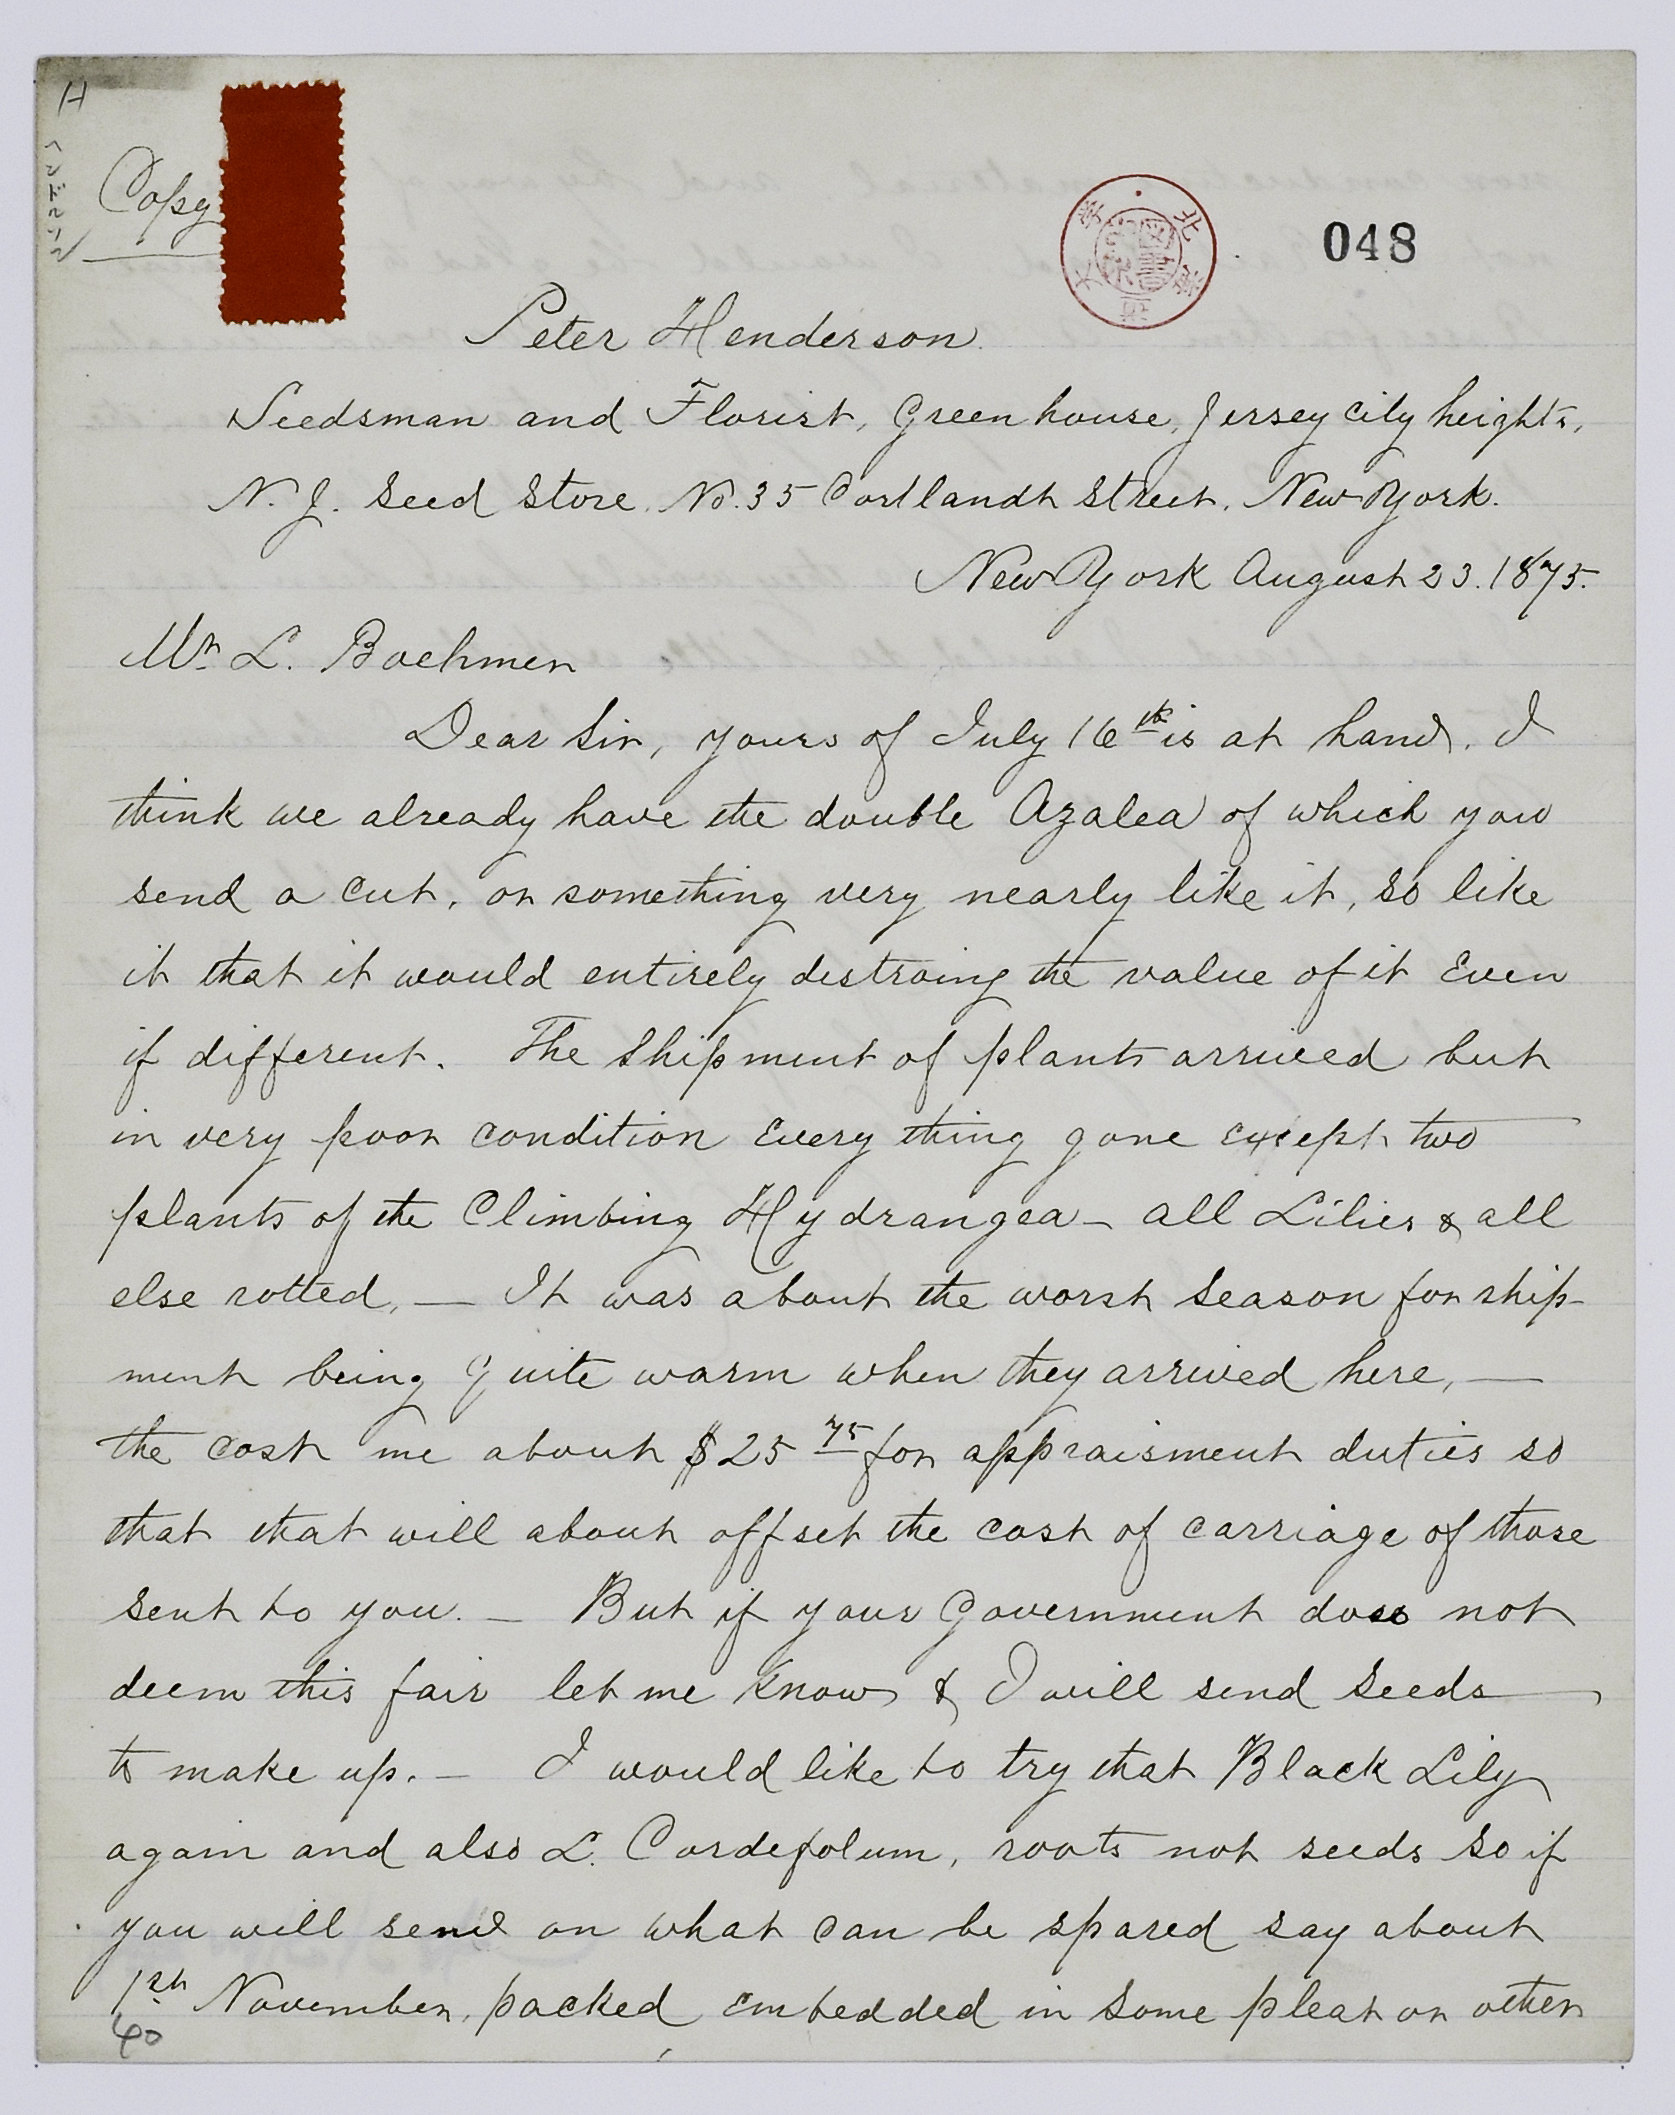 H
Copy
048
北海道大學
圖書
Peter Henderson.
Seedsman and Florist, Greenhouse, Jersey City heights,
N. J. Seed Store, No. 35 Cortlandt Street, New York.
New York August 23. 1875.
Mr. L. Boehmer
Dear Sir, yours of July 16th is at hand. I
think we already have the double Azalea of which you
send a cut, or something very nearly like it, so like
it that it would entirely destroing the value of it Even
if different. The Shipment of plants arrived but
in very poor condition Every thing gone except two
plants of the Climbing Hydrangea – all Lilies & all
else rotted, — It was about the worst Season for ship-
ment being quite warm when they arrived here, —
the cost me about $25 75 for appraisment duties so
that that will about offset the cost of carriage of those
sent to you. — But if your Government does not
deem this fair let me know & I will send Seeds
to make up. — I would like to try that Black Lily
again and also L. Cordefolum, roots not seeds so if
you will send on what can be spared say about
1st November, packed embedded in some pleat or other
40